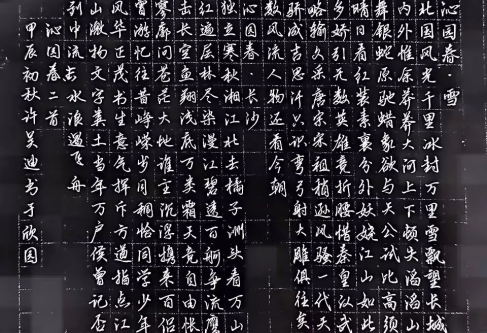 沁园春·雪
北国风光千里冰封万里雪飘望长城
内外惟余莽莽大河上下顿失滔滔山
舞银蛇原驰蜡象欲与天公试比高须
晴日看红装素裹分外妖娆江山如此
多娇引无数英雄竞折腰惜秦皇汉武
略输文采唐宗宋祖稍逊风骚一代天
骄成吉思汗只识弯弓射大雕俱往矣
数风流人物还看今朝
沁园春·长沙
独立寒秋湘江北去橘子洲头看万山
红遍层林尽染漫江碧透百舸争流鹰
击长空鱼翔浅底万类霜天竞自由怅
寥廓问苍茫大地谁主沉浮携来百侣
曾游忆往昔峥嵘岁月稠恰同学少年
风华正茂书生意气挥斥方遒指点江
山激扬文字粪土当年万户侯曾记否
到中流击水浪遏飞舟
沁园春二首
甲辰初秋许吴迪书于欣园